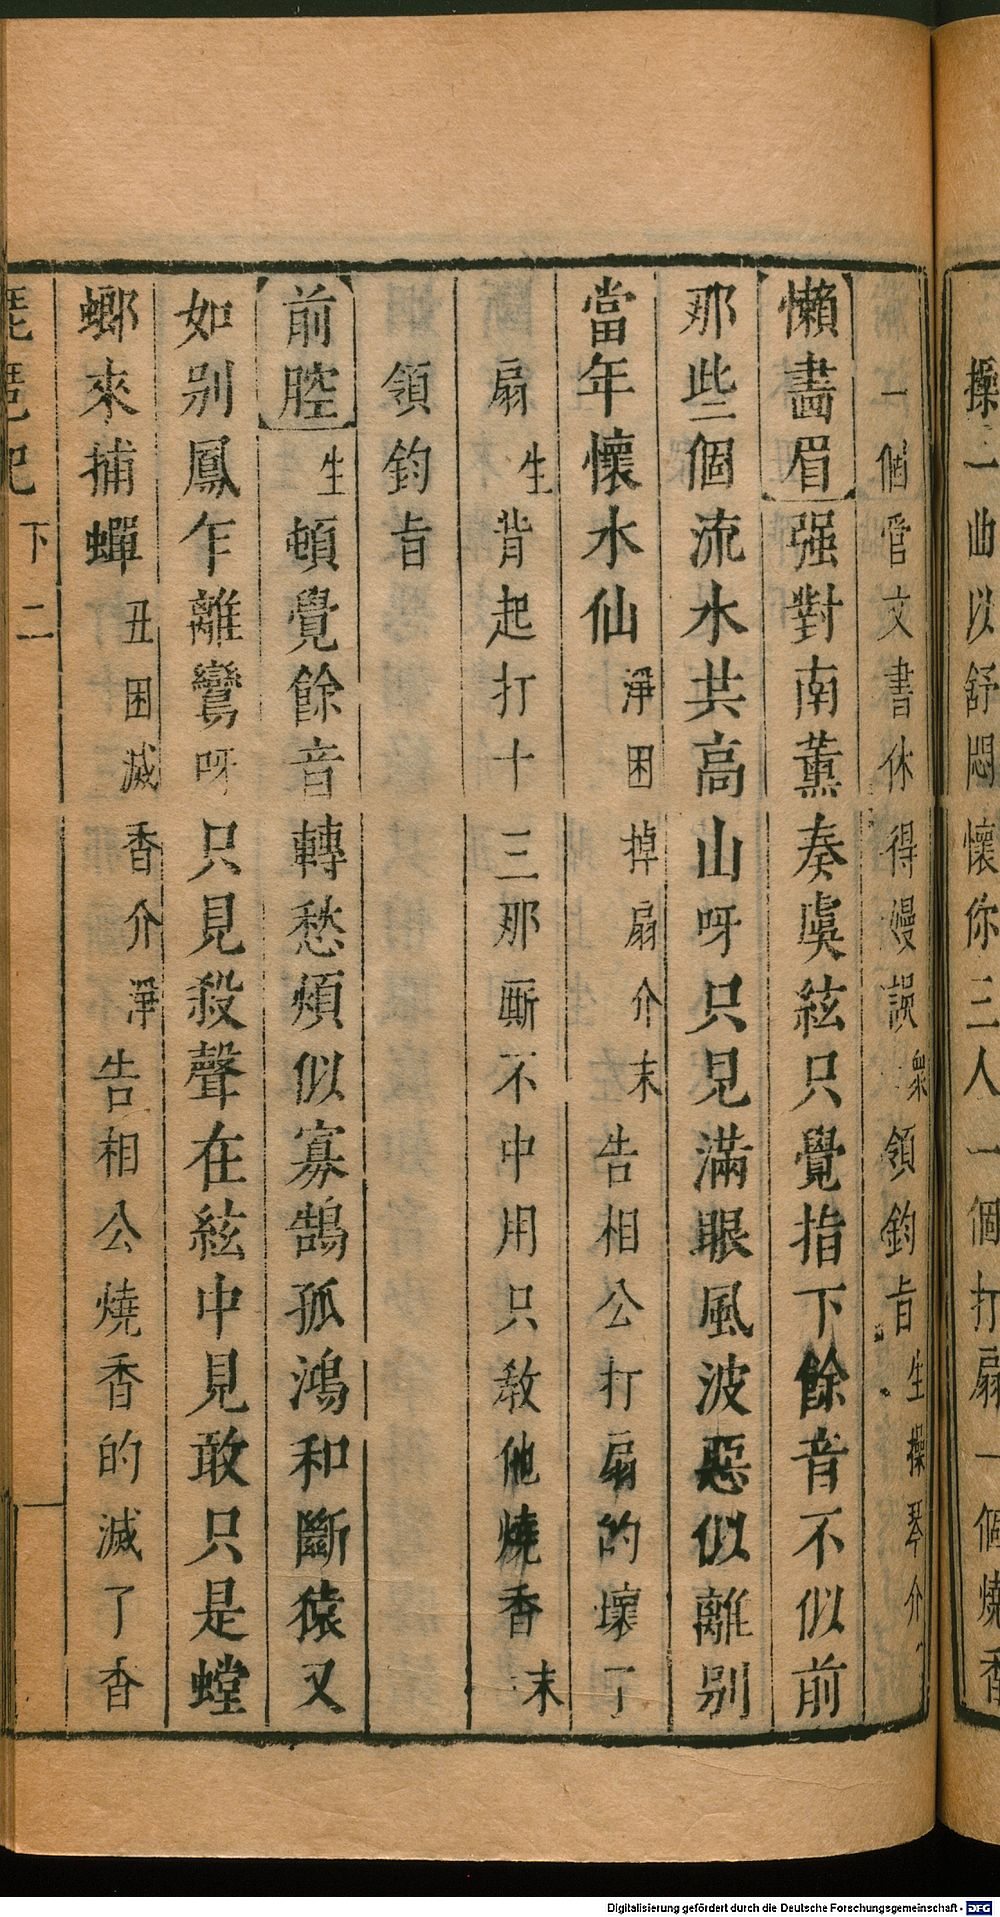 操一曲以舒悶懷你三人一個打扇一個燒香
一個管文書休得嫚誤衆領鈞旨生操琴介
懶畫眉强對南薰奏虞絃只覺指下餘音不似前
那些個流水共高山呀只見滿眼風波惡似離別
當年懷水仙淨困掉扇介末告相公打扇的壞了
扇生背起打十三那厮不中用只教他燒香末
領鈞旨
前腔生頓覺餘音轉愁煩似寡鵠孤鴻和斷猿又
如别鳳乍離鸞呀只見殺聲在絃中見敢只是螳
螂來捕蟬丑困滅香介淨告相公燒香的滅了香
琵琶記 下 二
Digitalisierung gefördert durch die Deutsche Forschungsgemeinschaft - DFG